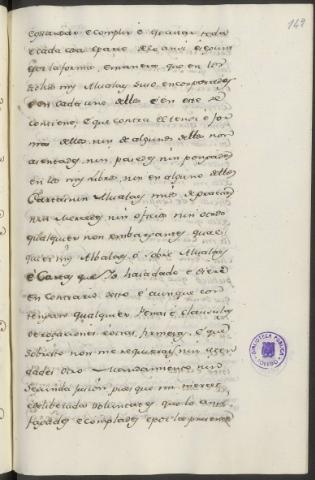 149
e guardar e complir e guarar toda
e cada cosa e parte dello ansi e segund
e por la forma, e manera que en los
dichos mis Alvalas suso encorporados
e en cada uno dellos e en este se
contiene, e que contra el tenor e for
ma dellos, nin de algunos dellos non
asentades, nin pasedes nin pongades
en los mis libros, nin en alguno dellos
Cartas nin Alvalas mias de gracias
nin Mercedes nin oficios nin otras
qualquier non embargantes quales
quier mis Albalas, o sobre Alvalas
e Cartas que Yo haia dado e diere
en Contrario desto e aunque con
tengan qualesquier penas e clausulas
derogaciones e otras firmezas, e que
sobrello non me requirais nin aten
dades otro Mandamiento nin
segunda jusion pues que mi merced
e deliberada voluntad es que lo ansi
fagades e complades e por la presente
BIBLIOTECA PUBLICA
TOLEDO